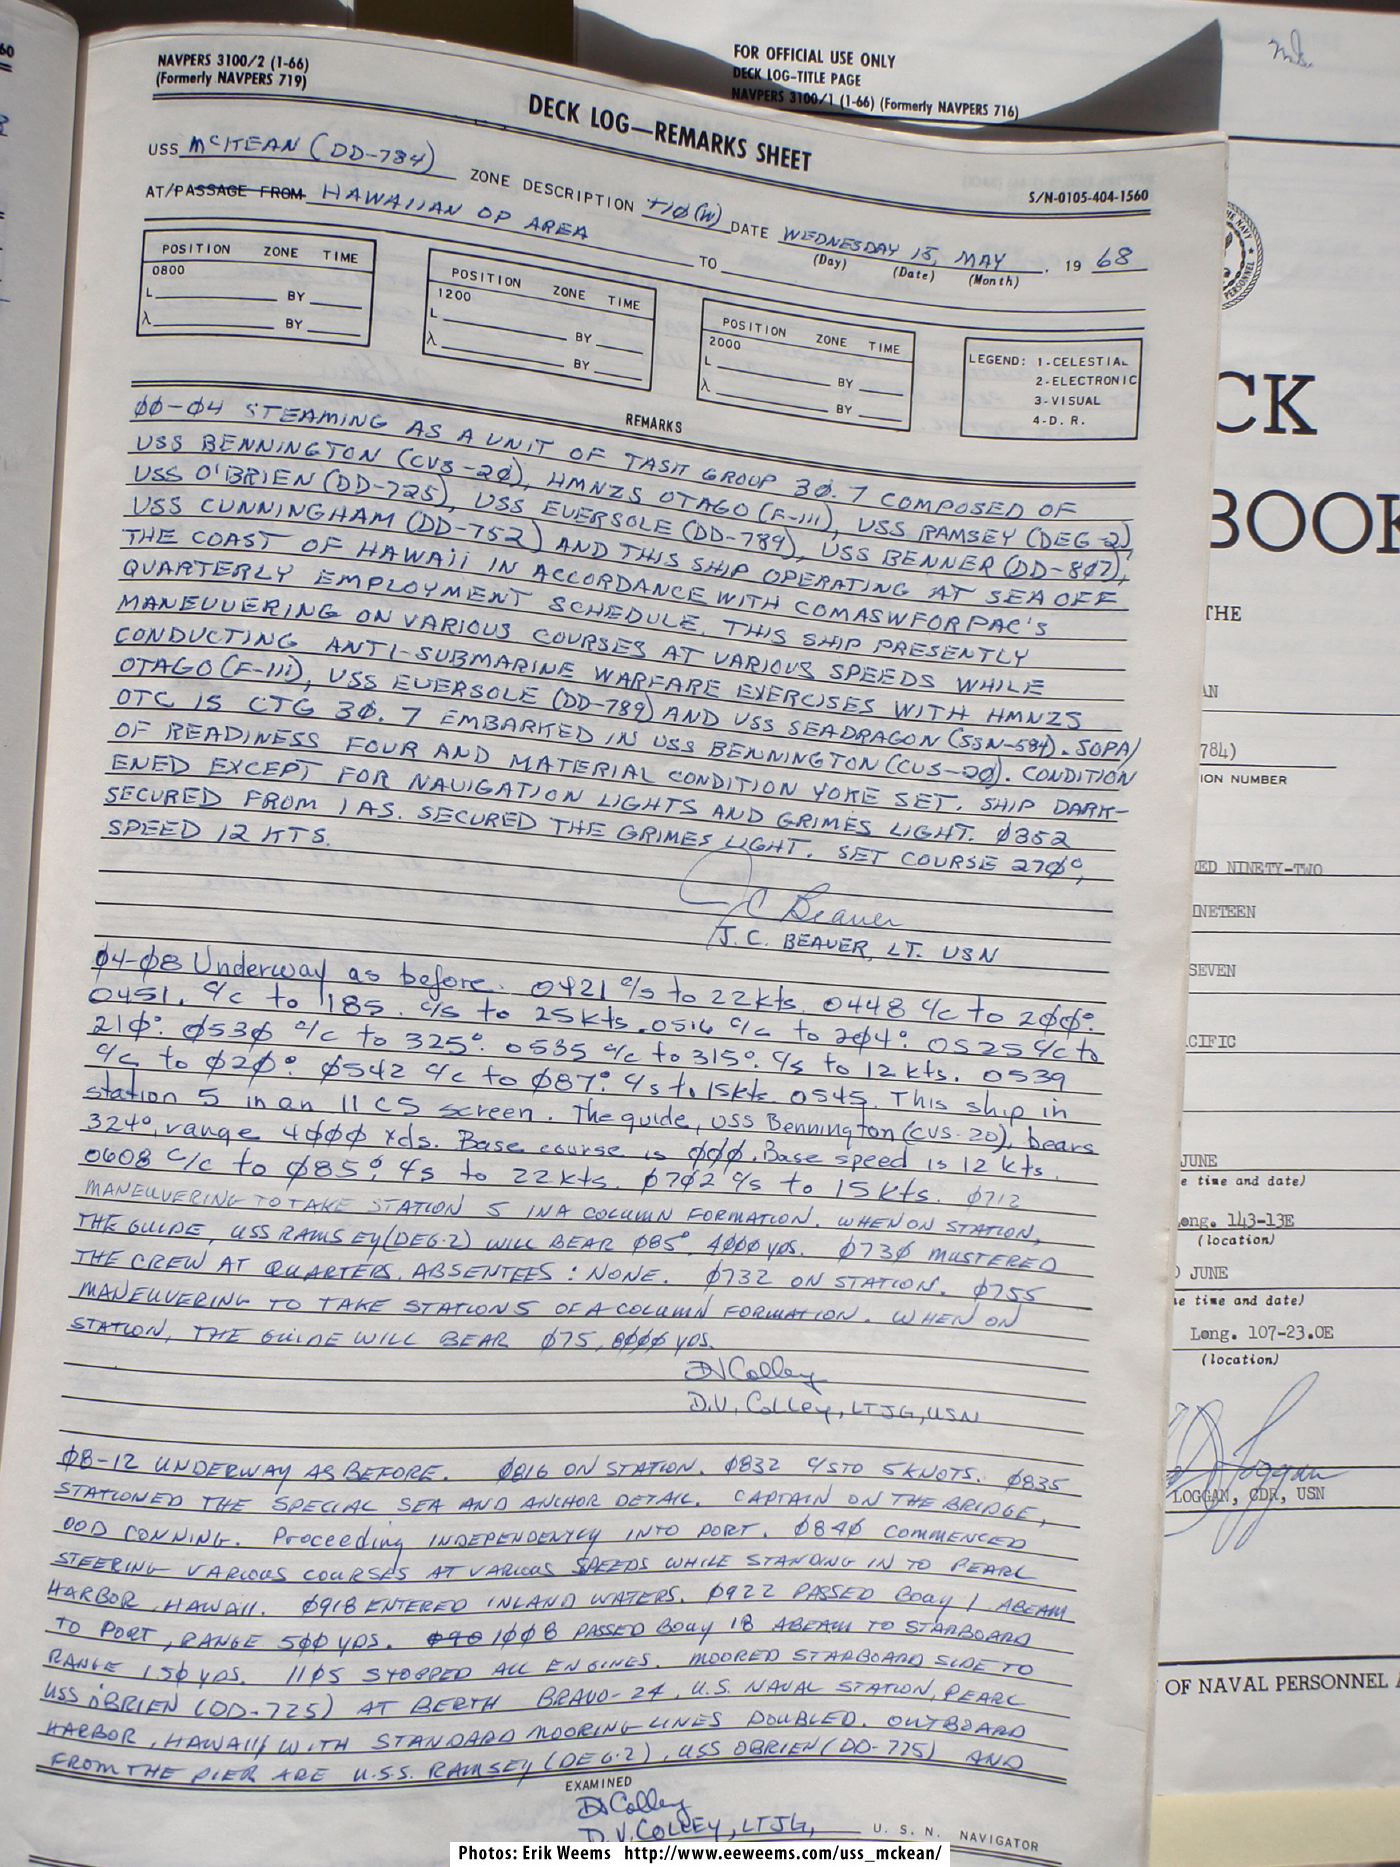 NAVPERS 3100/2 (1-66)
(Formerly NAVPERS 719)
FOR OFFICIAL USE ONLY
DECK LOG—TITLE PAGE
NAVPERS 3100/1 (1-66) (Formerly NAVPERS 716)
DECK LOG—REMARKS SHEET
S/N-0105-404-1560
USS McKEAN (DD-784) ZONE DESCRIPTION +1Ø (W) DATE WEDNESDAY 15, MAY, 19 68
(Day) (Date) (Month)
AT/PASSAGE FROM HAWAIIAN OP AREA TO
POSITION ZONE TIME
0800
L BY
λ BY
POSITION ZONE TIME
1200
L BY
λ BY
POSITION ZONE TIME
2000
L BY
λ BY
LEGEND: 1-CELESTIAL
2-ELECTRONIC
3-VISUAL
4-D. R.
REMARKS
ØØ-Ø4 STEAMING AS A UNIT OF TASK GROUP 3Ø.7 COMPOSED OF
USS BENNINGTON (CVS-2Ø), HMNZS OTAGO (F-111), USS RAMSEY (DEG-2),
USS O'BRIEN (DD-725), USS EVERSOLE (DD-789), USS BENNER (DD-8Ø7),
USS CUNNINGHAM (DD-752) AND THIS SHIP OPERATING AT SEA OFF
THE COAST OF HAWAII IN ACCORDANCE WITH COMASWFORPAC'S
QUARTERLY EMPLOYMENT SCHEDULE. THIS SHIP PRESENTLY
MANEUVERING ON VARIOUS COURSES AT VARIOUS SPEEDS WHILE
CONDUCTING ANTI-SUBMARINE WARFARE EXERCISES WITH HMNZS
OTAGO (F-111), USS EVERSOLE (DD-789) AND USS SEADRAGON (SSN-584). SOPA/
OTC IS CTG 3Ø.7 EMBARKED IN USS BENNINGTON (CVS-2Ø). CONDITION
OF READINESS FOUR AND MATERIAL CONDITION YOKE SET. SHIP DARK-
ENED EXCEPT FOR NAVIGATION LIGHTS AND GRIMES LIGHT. Ø352
SECURED FROM 1AS. SECURED THE GRIMES LIGHT. SET COURSE 27Ø°,
SPEED 12 KTS.
JC Beaver
J. C. BEAVER, LT. USN
Ø4-Ø8 Underway as before. 0421 c/s to 22kts. 0448 c/c to 2ØØ°.
0451. c/c to 185. c/s to 25kts. 0516 c/c to 2Ø4°. 0525 c/c to
21Ø°. Ø53Ø c/c to 325°. 0535 c/c to 315°. c/s to 12 kts. 0539
c/c to Ø2Ø°. Ø542 c/c to Ø87°. c/s to 15kts. 0545. This ship in
station 5 in an 11 C5 screen. The guide, USS Bennington (CVS-20), bears
324°, range 4ØØØ yds. Base course is ØØØ. Base speed is 12 kts.
0608 c/c to Ø85°. c/s to 22 kts. Ø7Ø2 c/s to 15kts. Ø712
MANEUVERING TO TAKE STATION 5 IN A COLUMN FORMATION. WHEN ON STATION,
THE GUIDE, USS RAMSEY (DEG-2) WILL BEAR Ø85° 4ØØØ YDS. Ø73Ø MUSTERED
THE CREW AT QUARTERS. ABSENTEES: NONE. Ø732 ON STATION. Ø755
MANEUVERING TO TAKE STATION 5 OF A COLUMN FORMATION. WHEN ON
STATION, THE GUIDE WILL BEAR Ø75, 8ØØØ YDS.
DV Colley
D.V. Colley, LTJG, USN
Ø8-12 UNDERWAY AS BEFORE. Ø816 ON STATION. Ø832 C/S TO 5 KNOTS. Ø835
STATIONED THE SPECIAL SEA AND ANCHOR DETAIL. CAPTAIN ON THE BRIDGE,
OOD CONNING. Proceeding INDEPENDENTLY INTO PORT. Ø84Ø COMMENCED
STEERING VARIOUS COURSES AT VARIOUS SPEEDS WHILE STANDING IN TO PEARL
HARBOR, HAWAII. Ø918 ENTERED INLAND WATERS. Ø922 PASSED BOUY 1 ABEAM
TO PORT, RANGE 5ØØ YDS. 1ØØ8 PASSED BOUY 18 ABEAM TO STARBOARD
RANGE 15Ø YDS. 11Ø5 STOPPED ALL ENGINES. MOORED STARBOARD SIDE TO
USS O'BRIEN (DD-725) AT BERTH BRAVO-24, U.S. NAVAL STATION, PEARL
HARBOR, HAWAII WITH STANDARD MOORING LINES DOUBLED. OUTBOARD
FROM THE PIER ARE U.S.S. RAMSEY (DEG-2), USS OBRIEN (DD-725) AND
EXAMINED
DV Colley
D.V. COLLEY, LTJG, U. S. N. NAVIGATOR
CK
BOOK
THE
AN
784)
ION NUMBER
RED NINETY-TWO
INETEEN
SEVEN
CIFIC
JUNE
e time and date)
ong. 143-13E
(location)
JUNE
e time and date)
Long. 107-23.0E
(location)
LOGGAN, CDR, USN
OF NAVAL PERSONNEL
Photos: Erik Weems http://www.eeweems.com/uss_mckean/